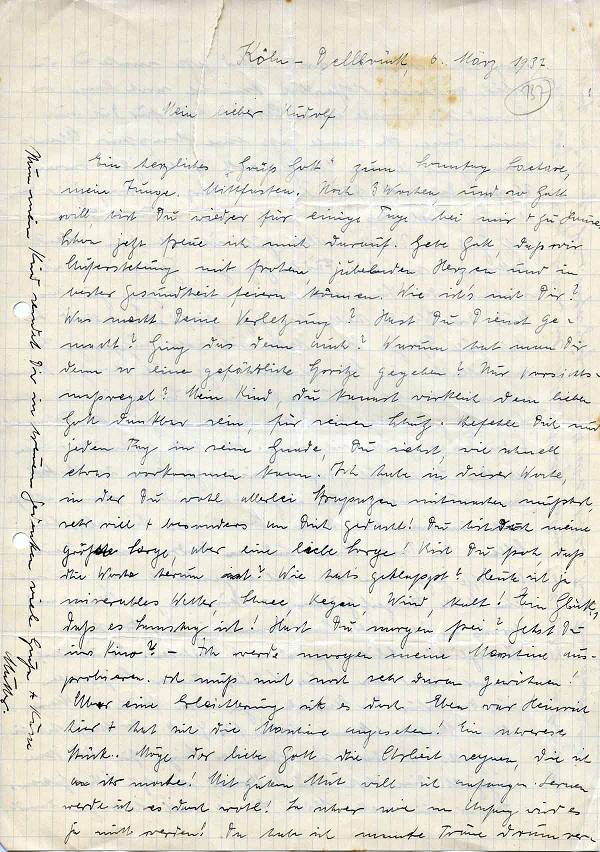 Köln - Dellbrück, 6. März 1937
137
Mein lieber Rudolf
Ein herzliches "Grüß Gott" zum Sonntag Laetare,
mein Junge. Mittfasten. Noch 3 Wochen, und so Gott
will, bist Du wieder für einige Tage bei mir + zu Hause,
Schon jetzt freue ich mich darauf. Gebe Gott, daß wir
Auferstehung mit frohen, jubelnden Herzen und in
bester Gesundheit feiern können. Wie ist's mit Dir?
Was macht Deine Verletzung? Hast Du Dienst ge-
macht? Ging das denn auch? Warum hat man Dir
denn so eine gefährliche Spritze gegeben? Nur Vorsichts-
maßregel? Mein Kind, du kannst wirklich dem lieben
Gott dankbar sein, für seinen Schutz. Befehle Dich nur
jeden Tag in seine Hände, Du siehst, wie schnell
etwas vorkommen kann. Ich habe in dieser Woche,
in der Du wohl allerlei Strapazen mitmachen mußtest,
sehr viel + besonders an Dich gedacht! Du bist doch meine
größte Sorge, aber eine liebe Sorge! Bist Du froh, daß
die Woche herum ist? Wie hat's geklappt? Heute ist ja
miserables Wetter, Schnee, Regen, Wind, kalt! Ein Glück,
daß es Samstag ist! Hast Du morgen frei? Gehst Du
ins Kino? - Ich werde morgen meine Maschine aus-
probieren. Ich muß mich noch sehr daran gewöhnen!
Aber eine Erleichterung ist es doch. Eben war Heinrich
hier + hat sich die Maschine angesehen! Ein schweres
Stück. Möge der liebe Gott die Arbeit segnen, die ich
an ihr mache! Mit gutem Mut will ich anfangen. Lernen
werde ich es doch wohl! So schwer wie im Anfang wird es
ja nicht werden! Da habe ich manche Träne drum ver-
Nun mein Kind sendet Dir in treuem Gedenken viele Grüße + Küsse
Mutter.